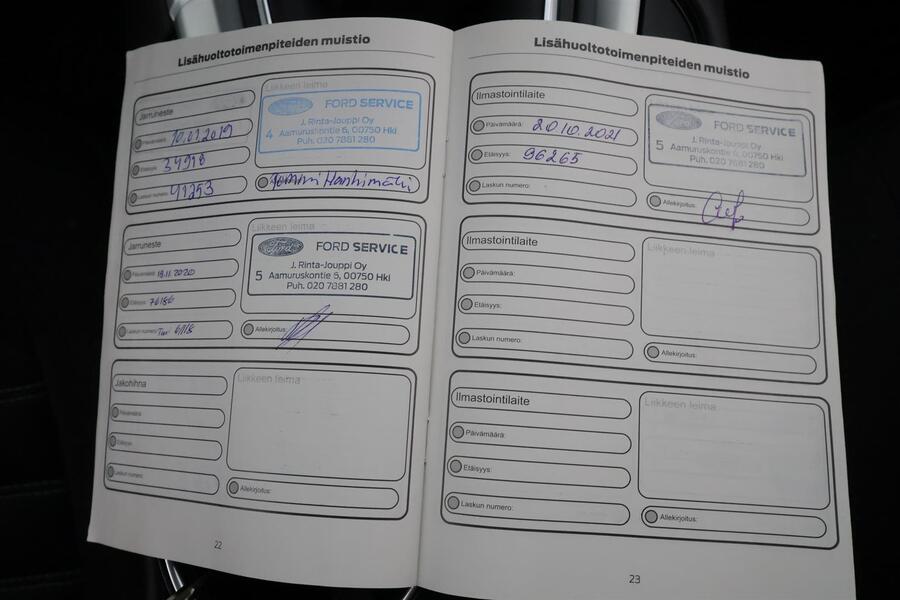 Lisähuoltotoimenpiteiden muistio
Jarruneste
Päivämäärä:
Etäisyys:
Laskun numero: 41253
Liikkeen leima
Ford
FORD SERVICE
4
J. Rinta-Jouppi Oy
Aamuruskontie 5, 00750 Hki
Puh. 020 7881 280
Jarruneste
Päivämäärä: 18.11.2020
Etäisyys: 76186
Laskun numero:
Liikkeen leima
Ford
FORD SERVICE
5
J. Rinta-Jouppi Oy
Aamuruskontie 5, 00750 Hki
Puh. 020 7881 280
Allekirjoitus:
Jakohihna
Päivämäärä:
Etäisyys:
Laskun numero:
Liikkeen leima
Allekirjoitus:
22
Lisähuoltotoimenpiteiden muistio
Ilmastointilaite
Päivämäärä: 20.10.2021
Etäisyys: 96265
Laskun numero:
Ford
FORD SERVICE
5
J. Rinta-Jouppi Oy
Aamuruskontie 5, 00750 Hki
Puh. 020 7881 280
Allekirjoitus:
Ilmastointilaite
Päivämäärä:
Etäisyys:
Laskun numero:
Liikkeen leima
Allekirjoitus:
Ilmastointilaite
Päivämäärä:
Etäisyys:
Laskun numero:
Liikkeen leima
Allekirjoitus:
23